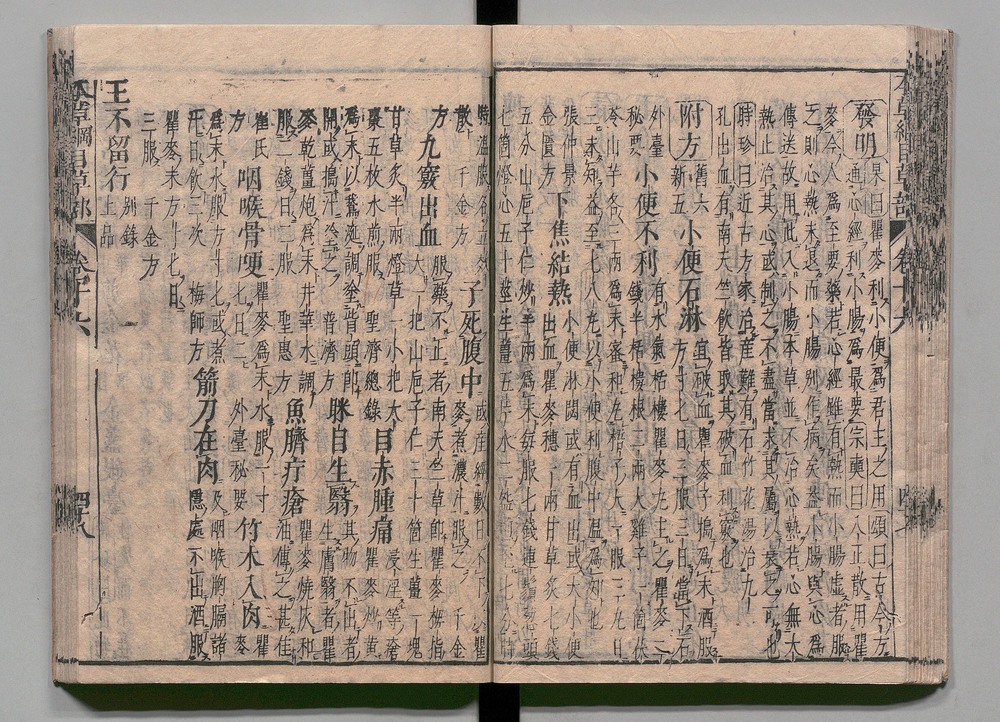 本草綱目草部 卷十六
發明 杲曰瞿麥利小便爲君主之用頌曰古今方
通心經利小腸爲最要宗奭曰八正散用瞿
麥今人爲至要藥若心經雖有熱而小腸虛者服
之則心熱未退而小腸別作病矣蓋小腸與心爲
傳送故用此入小腸本草並不治心熱若心無大
熱止治其心或制之不盡當求其屬以衰之可也
時珍曰近古方家治產難有石竹花湯治九
孔出血有南天竺飲皆取其破血利竅也
附方 舊六新五
小便石淋 宜破血瞿麥子搗爲末酒服
方寸匕日三服三日當下石
外臺秘要 小便不利 有水氣栝樓瞿麥丸主之瞿麥二
錢半栝樓根二兩大附子一箇茯
苓山芋各三兩爲末蜜和丸梧子大一服三丸日
三未知益至七八丸以小便利腹中溫爲知也
張仲景金匱方 下焦結熱 小便淋閟或有血出或大小便
出血瞿麥穗一兩甘草炙七錢
五分山巵子仁炒半兩爲末每服七錢連鬚葱頭
七箇燈心五十莖生薑五片水二碗煎至七分時
時溫服名立效散 千金方
子死腹中 或産經數日不下以瞿
麥煮濃汁服之 千金方
九竅出血 服藥不止者南天竺草卽瞿麥拇指
大一把山巵子仁三十箇生薑一塊
甘草炙半兩燈草一小把大
棗五枚水煎服 聖濟總錄 目赤腫痛 浸淫等瘡瞿麥炒黃
爲末以鵞涎調塗眥頭卽
開或搗汁塗之 普濟方 眯目生翳 其物不出者生膚翳者瞿
麥乾薑炮爲末井華水調
服二錢日二服 聖惠方 魚臍疔瘡 瞿麥燒灰和油傅之甚佳
崔氏方 咽喉骨哽 瞿麥爲末水服一寸匕日二 外臺秘要 竹木入肉 瞿麥
爲末水服方寸匕或煮汁日飲三次 梅師方 箭刀在肉 及咽喉胸膈諸隱處不出酒服
瞿麥末方寸匕日三服 千金方
王不留行 別錄上品
本草綱目草部 卷十六 四八